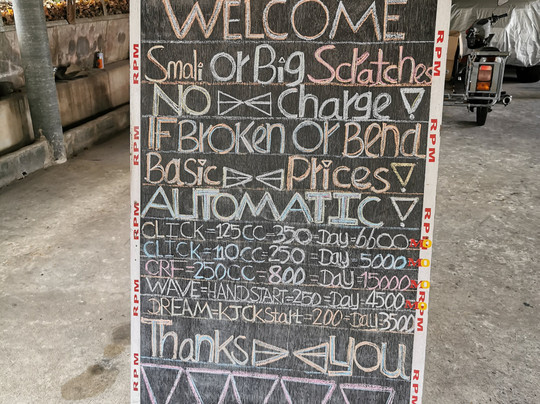 WELCOME
Small Or Big Scratches
NO Charge !
IF Broken Or Bend
Basic Prices!
AUTOMATIC !
CLICK=125CC=350=Day=6600
CLICK=110CC=250=Day=5000
CRF=250CC=800=Day=15000
WAVE=HANDSTART=250-Day=4500
DREAM=KJCKStart=200=Day=3500
Thanks you
RPM
RPM
RPM
RPM
RPM
RPM
RPM
RPM
RPM
RPM